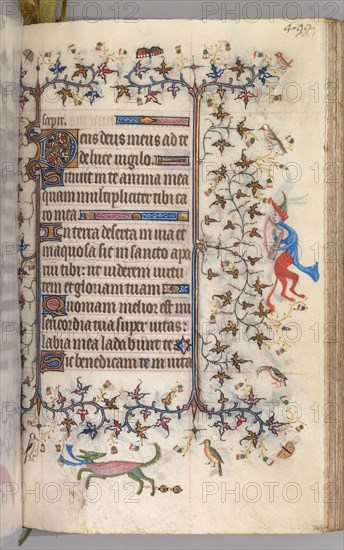 scepit.
Deus deus meus ad te
de luce vigilo.
Sitivit in te anima mea
quam multipliciter tibi ca
ro mea.
In terra deserta in via et
inaquosa sic in sancto apa
rui tibi: ut viderem virtu
tem et gloriam tuam
Quoniam melior est mi
sericordia tua super vitas:
labia mea laudabunt te
Sic benedicam te in vita
PHOTO12